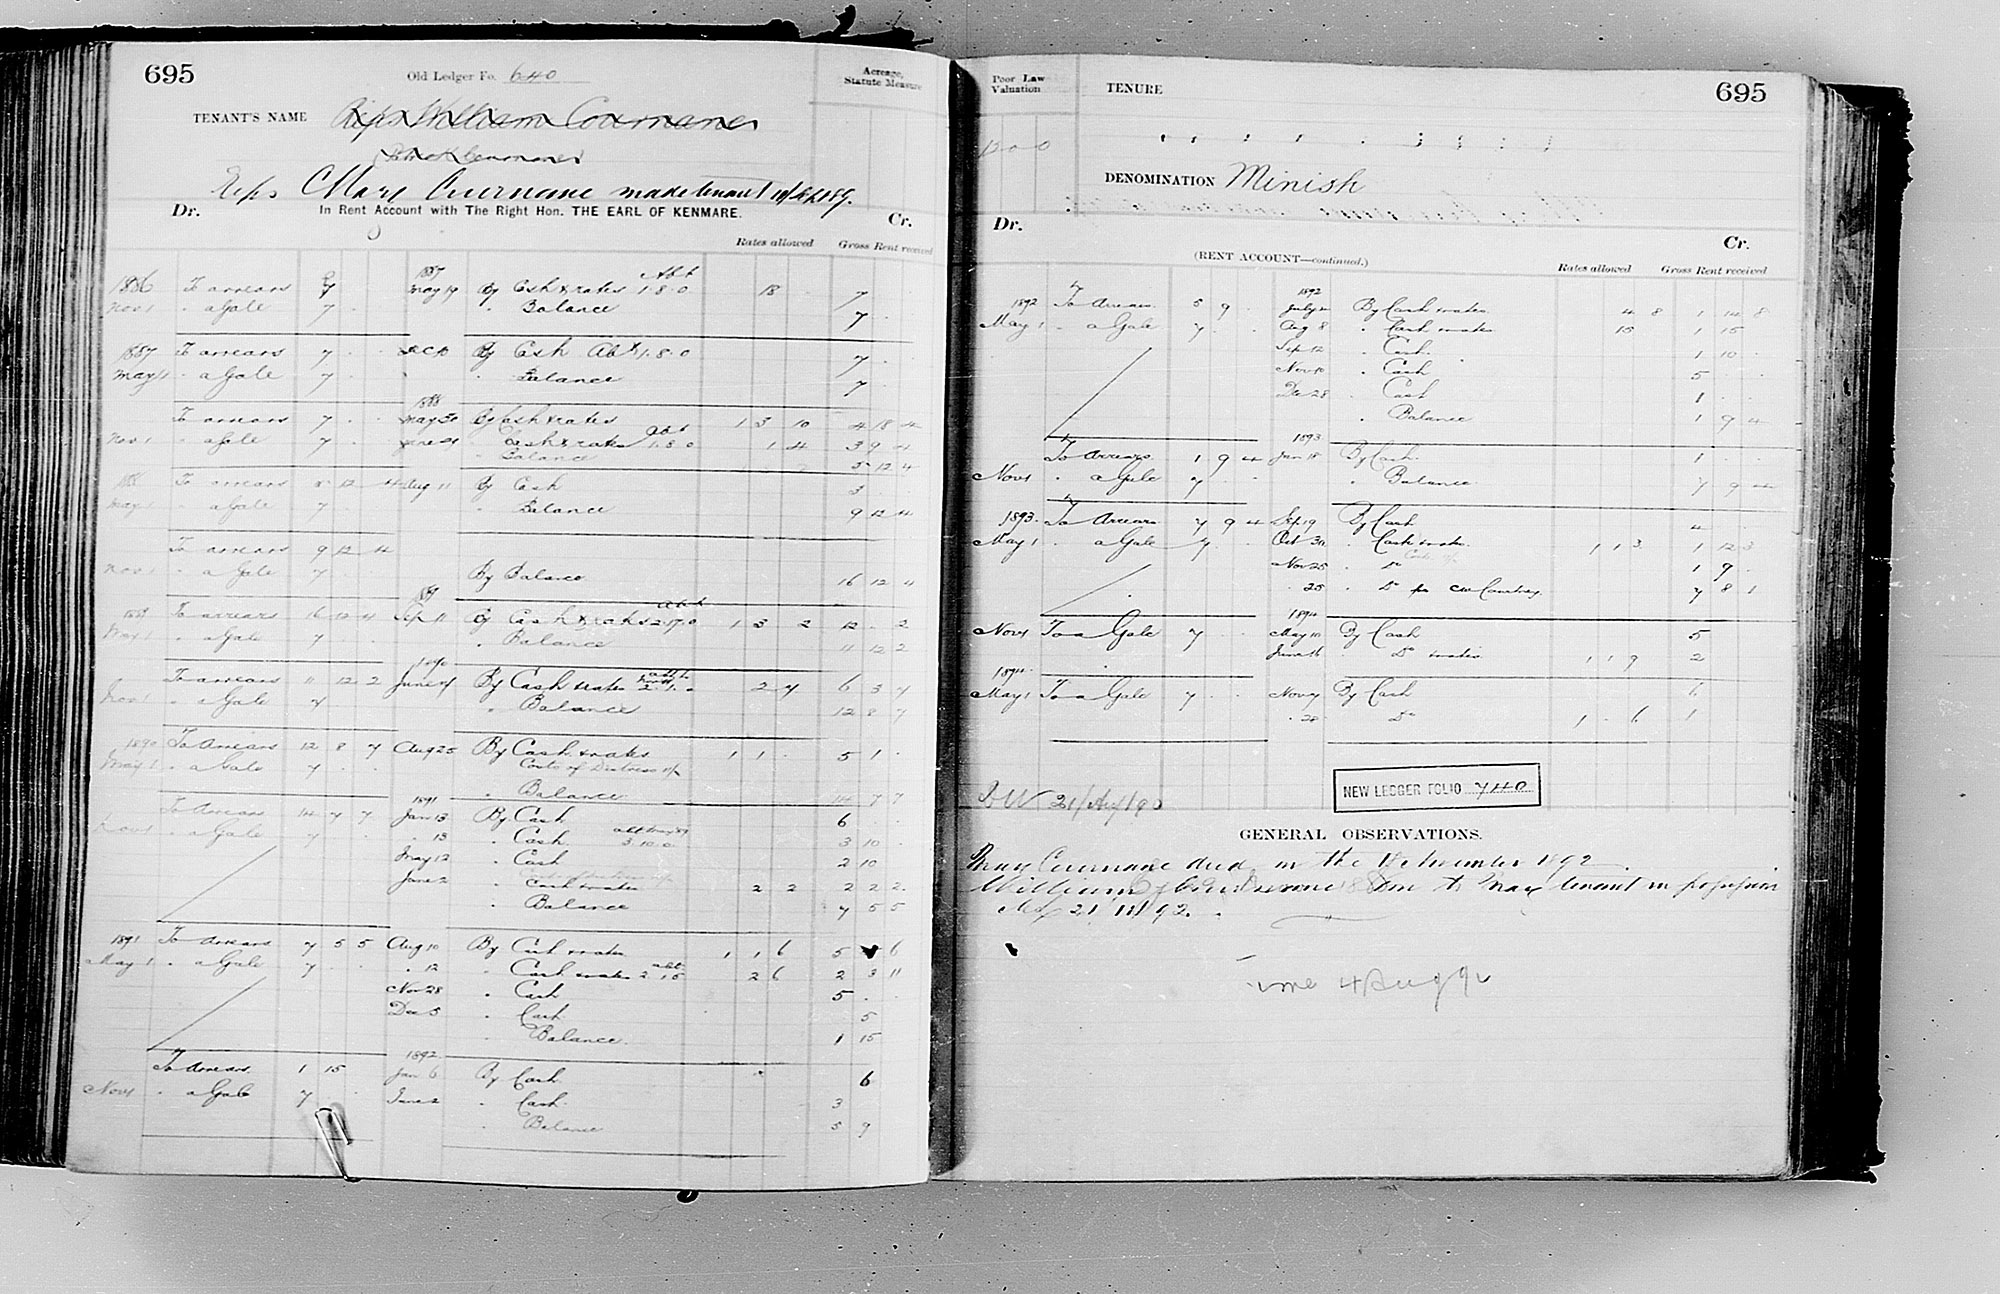 695
Old Ledger Fo. 640
Acreage,
Statute Measure
TENANT'S NAME Reps William Cournane
Reps Mary Cournane made tenant
Dr. In Rent Account with The Right Hon. THE EARL OF KENMARE. Cr.
Rates allowed Gross Rent received
1886 To arrears 7 1887 May 19 By Cash & rates Abt 1.8.0 18 7
Nov 1 " a Gale 7 " Balance 7
1887 To arrears 7 By Cash Abt 1.8.0 7
May 1 " a Gale 7 " Balance 7
To arrears 7 1888 May 30 By Cash & rates 1 3 10 4 18 4
Nov 1 " a Gale 7 Cash & rates Abt 1.8.0 1 4 3 9 4
" Balance 5 12 4
To arrears 5 12 4 Aug 11 By Cash 3
May 1 " a Gale 7 " Balance 9 12 4
To arrears 9 12 4
Nov 1 " a Gale 7 By Balance 16 12 4
1889 To arrears 16 12 4 1889 Sep 11 By Cash & rates Abt 2.17.0 1 3 2 12 . 2
May 1 " a Gale 7 " Balance 11 12 2
To arrears 11 12 2 1890 June 4 By Cash & rates 2.1.0 2 7 6 3 7
Nov 1 " a Gale 7 " Balance 12 8 7
1890 To Arrears 12 8 7 Aug 25 By Cash & rates 1 1 . 5 1 .
May 1 " a Gale 7 Costs of Distress
" Balance 14 7 7
To Arrears 14 7 7 1891 Jan 13 By Cash 6
Nov 1 " a Gale 7 " 13 " Cash 3.10.0 3 10
May 12 " Cash 2 10
June 2 " Cash & rates 2 2 2 2 2
" Balance 7 5 5
1891 To Arrears 7 5 5 Aug 10 By Cash & rates 1 1 6 5 6
May 1 " a Gale 7 " 12 " Cash & rates 2 6 2 3 11
Nov 28 " Cash 5
Dec 5 " Cash 5
" Balance 1 15
To Arrears 1 15 1892 Jan 6 By Cash 6
Nov 1 " a Gale 7 June 2 " Cash 3
" Balance 5 9
Poor Law
Valuation
TENURE
695
DENOMINATION Minish
Dr. Cr.
(RENT ACCOUNT—continued.)
Rates allowed Gross Rent received
1892 To Arrears 5 9 1892 July By Cash & rates 4 8 1 14 8
May 1 " a Gale 7 Aug 8 " Cash & rates 15 1 15
Sep 12 " Cash 1 10
Nov 10 " Cash 5
Dec 28 " Cash 1
" Balance 1 9 4
To Arrears 1 9 4 1893 Jan 18 By Cash 1
Nov 1 " a Gale 7 " Balance 7 9 4
1893 To Arrears 7 9 4 Sep 19 By Cash 4
May 1 " a Gale 7 Oct 30 " Cash & rates 1 1 3 1 12 3
Nov 25 " Do 1 9
" 28 " Do per 7 8 1
Nov 1 To a Gale 7 1894 May 10 By Cash 5
June 16 Do & rates 1 1 9 2
1894
May 1 To a Gale 7 Nov 7 By Cash 6
" 28 Do 1 . 6 1
21/Aug/90
NEW LEDGER FOLIO 740
GENERAL OBSERVATIONS.
Mary Cournane died on the 1892
William Cournane son to Mary tenant in possession
4 Aug 92